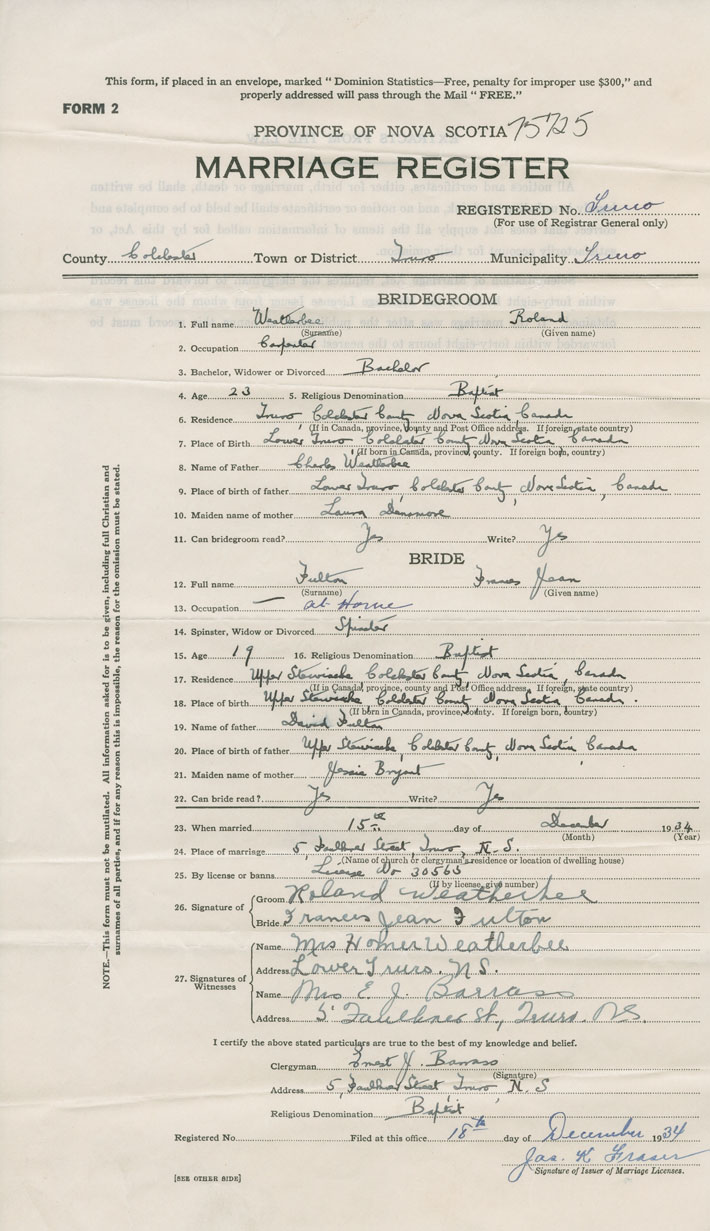 This form, if placed in an envelope, marked " Dominion Statistics—Free, penalty for improper use $300," and
properly addressed will pass through the Mail " FREE."
FORM 2
PROVINCE OF NOVA SCOTIA 75725
MARRIAGE REGISTER
REGISTERED No. Truro
(For use of Registrar General only)
County Colchester Town or District Truro Municipality Truro
BRIDEGROOM
1. Full name Weatherbee Roland
(Surname) (Given name)
2. Occupation Carpenter
3. Bachelor, Widower or Divorced Bachelor
4. Age 23 5. Religious Denomination Baptist
6. Residence Truro Colchester County Nova Scotia, Canada
(If in Canada, province, county and Post Office address. If foreign, state country)
7. Place of Birth Lower Truro Colchester County Nova Scotia, Canada
(If born in Canada, province, county. If foreign born, country)
8. Name of Father Charles Weatherbee
9. Place of birth of father Lower Truro, Colchester County, Nova Scotia, Canada
10. Maiden name of mother Laura Densmore
11. Can bridegroom read? Yes Write? Yes
BRIDE
12. Full name Fulton Frances Jean
(Surname) (Given name)
13. Occupation — at Home
14. Spinster, Widow or Divorced Spinster
15. Age 19 16. Religious Denomination Baptist
17. Residence Upper Stewiacke Colchester County, Nova Scotia, Canada
(If in Canada, province, county and Post Office address. If foreign, state country)
18. Place of birth Upper Stewiacke Colchester County Nova Scotia Canada.
(If born in Canada, province, county. If foreign born, country)
19. Name of father David Fulton
20. Place of birth of father Upper Stewiacke, Colchester County, Nova Scotia Canada
21. Maiden name of mother Jessie Bryant
22. Can bride read? Yes Write? Yes
23. When married 15th day of December 1934
(Month) (Year)
24. Place of marriage 5 Faulkner Street, Truro, N.S.
(Name of church or clergyman's residence or location of dwelling house)
25. By license or banns License No 30565
(If by license, give number)
26. Signature of Groom Roland Weatherbee
Bride Frances Jean Fulton
27. Signatures of Witnesses
Name Mrs Homer Weatherbee
Address Lower Truro. N.S.
Name Mrs E. J. Barrass
Address 5 Faulkner St, Truro. N.S.
I certify the above stated particulars are true to the best of my knowledge and belief.
Clergyman Ernest J. Barrass
(Signature)
Address 5, Faulkner Street Truro, N.S
Religious Denomination Baptist
Registered No. Filed at this office 18th day of December 1934
Jas. K Fraser
Signature of Issuer of Marriage Licenses.
[SEE OTHER SIDE]
NOTE.—This form must not be mutilated. All information asked for is to be given, including full Christian and
surnames of all parties, and if for any reason this is impossible, the reason for the omission must be stated.